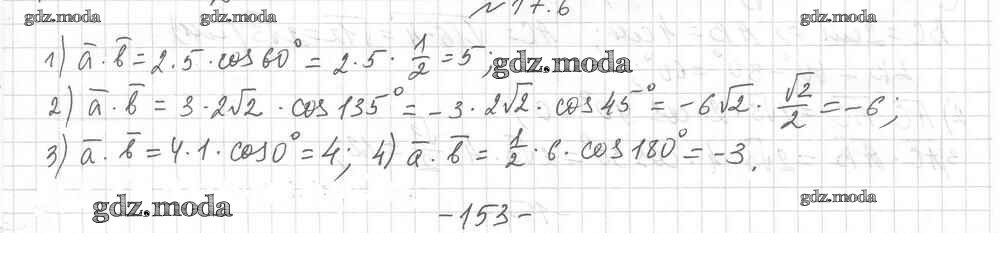 № 17.6
gdz.moda gdz.moda gdz.moda
1) a̅ · b̅ = 2·5 · cos 60° = 2·5 · 1/2 = 5; gdz.moda
2) a̅ · b̅ = 3 · 2√2 · cos 135° = -3 · 2√2 · cos 45° = -6√2 · √2/2 = -6;
3) a̅ · b̅ = 4·1 · cos 0° = 4; 4) a̅ · b̅ = 1/2 · 6 · cos 180° = -3.
gdz.moda -153- gdz.moda